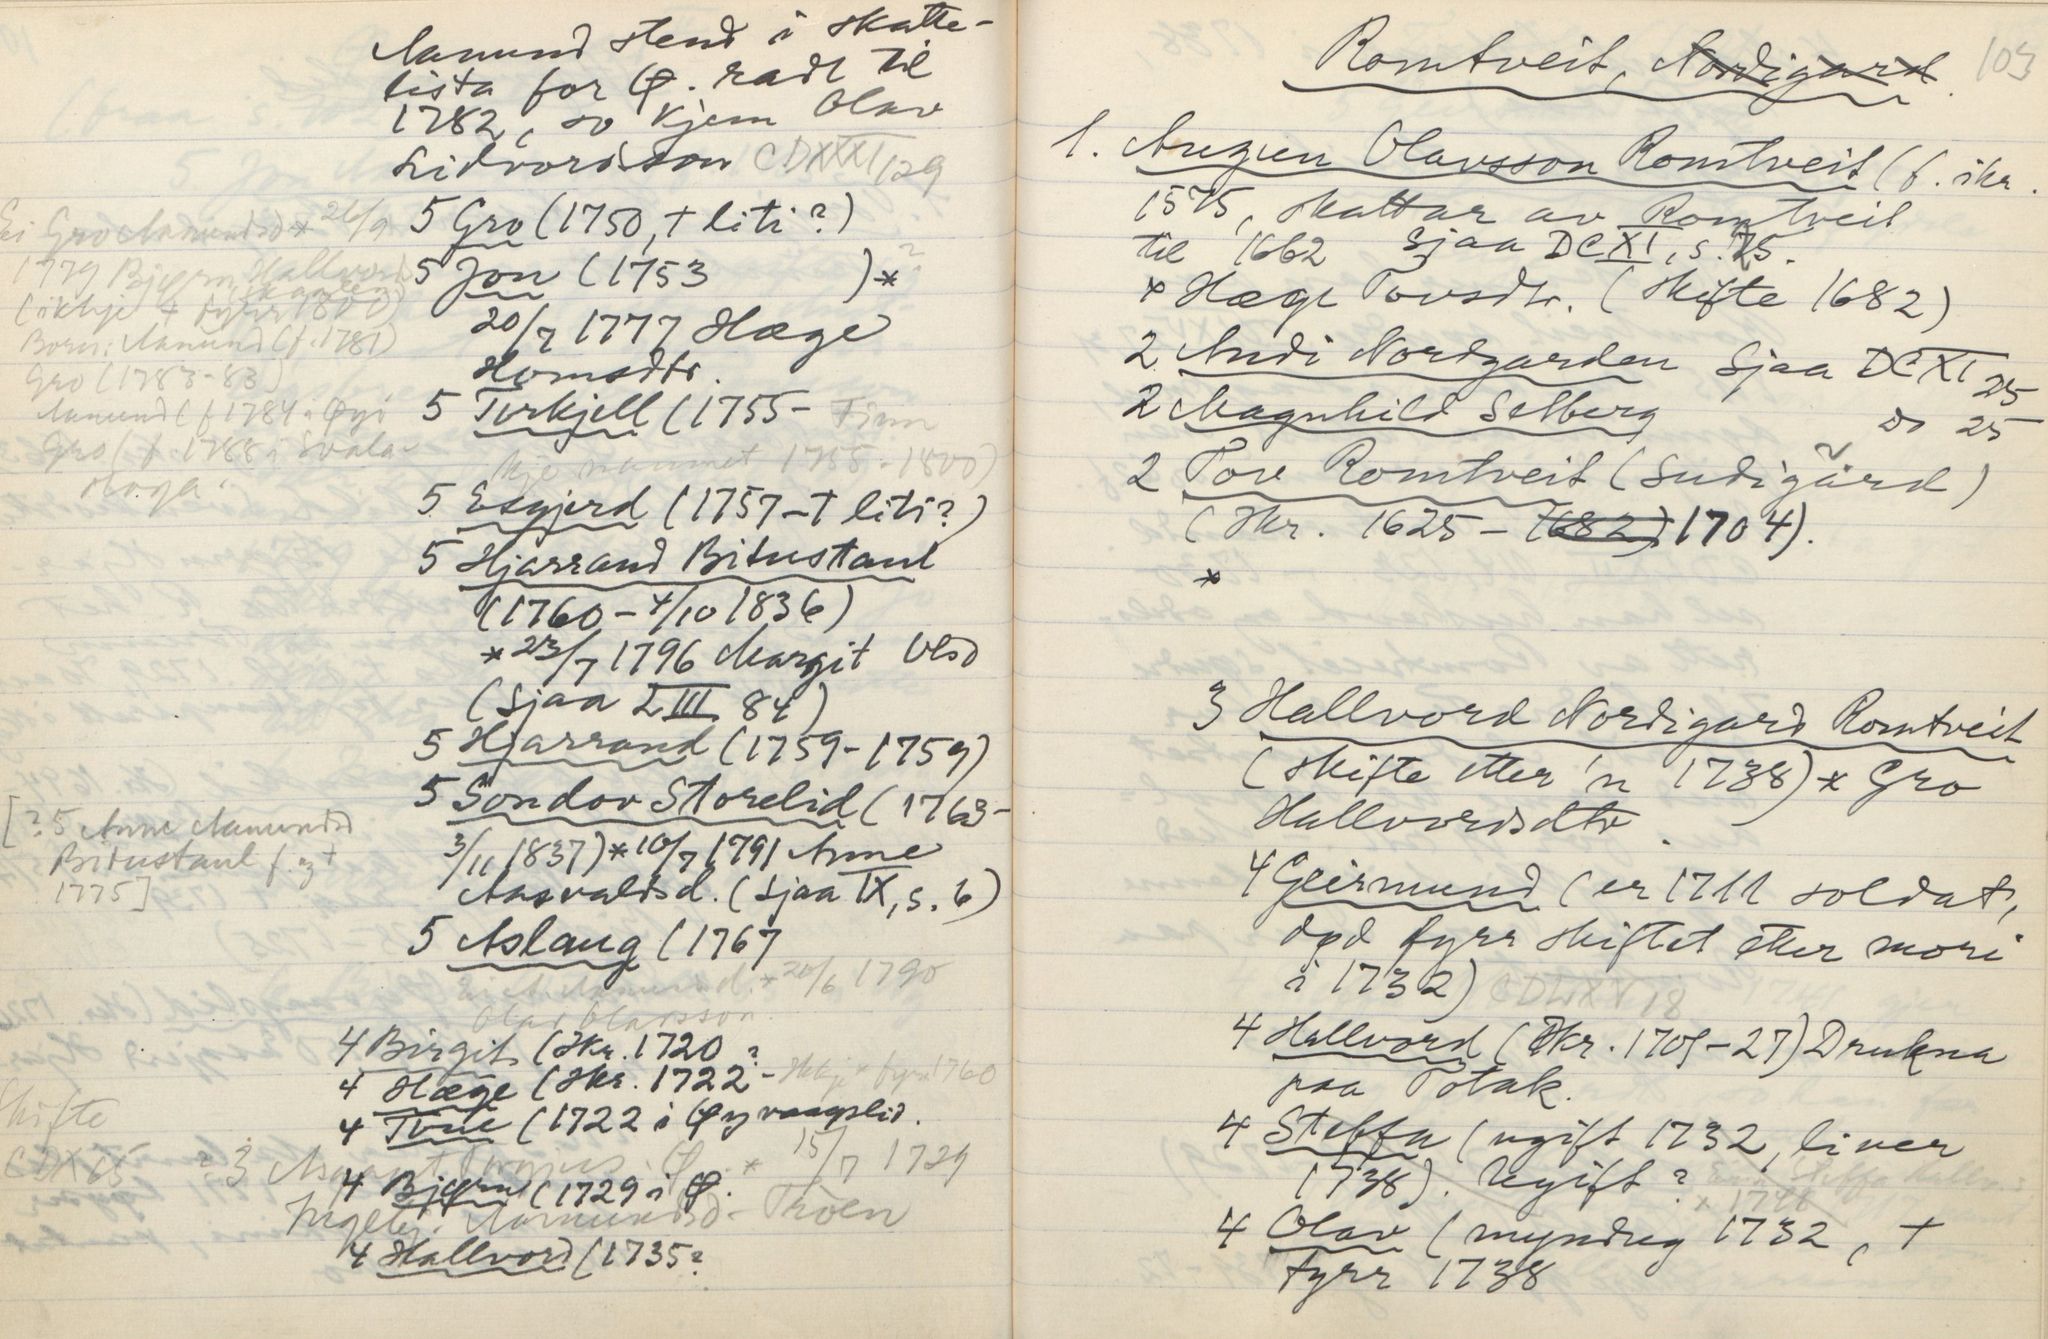 Aamund stend i skatte-
lista for Ø. radt til
1782, so kjem Olav
Lidvordsson CDXXXI/29
5 Gro (1750, + liti?)
5 Jon (1753 ) * ?
20/7 1777 Hæge
Homsdtr.
5 Turkjell (1755- Finn
kje nammet 1755-1800)
5 Esgjerd (1757-+ liti?)
5 Hjarrand Bitustaul
(1760-4/10 1836)
*23/7 1796 Margit Olsd
(Sjaa LIII 84)
5 Hjarrand (1759-1759)
5 Sondov Storelid (1763-
3/11 1837) * 10/7 1791 Anne
Aasvaldsd. (Sjaa IX, s. 6)
5 Aslaug (1767
Ei A. Aamundsd. * 20/6 1790
Olav Olavsson
4 Birgit (Ikr. 1720 ?
4 Hæge (Ikr. 1722- Ikkje * fyrr 1760
4 Tone (1722 i Øyvaagslid.
? 3 Ø. * 15/7 1729
4 Bjørn (1729 i Ø.
Ingebj. Aamundsd. Troen
4 Hallvord (1735?
Ei Gro Aamundsd * 26/9
1779 Bjørn Hallvords
(ikkje + fyrr 1800)
Born: Aamund (f. 1781)
Gro (1783-83)
Aamund (f 1784 i Øyi
Gro (f. 1788 i Svala-
stoga.
[? 5 Anne Aamundsd
Bitustaul f. og +
1775]
Skifte
CDX 65
103
Romtveit, Nordigard.
1. Augun Olavsson Romtveit (f. ikr.
1575, skattar av Romtveit
til 1662 Sjaa DCXI, s. 25.
* Hæge Tovsdtr. (Skifte 1682)
2 Andi Nordgarden Sjaa DCXI 25
2 Magnhild Selberg do 25
2 Tov Romtveit (Sudigård)
(Ikr. 1625 - 1682) 1704).
*
3 Hallvord Nordigard Romtveit
(Skifte etter 'n 1738) * Gro
Hallvordsdtr.
4 Geirmund (er 1711 soldat,
død fyrr skiftet etter mori
i 1732) CDLXXV 18
4 Hallvord (Ikr. 1705-27) Drukna
paa Totak.
4 Steffa (ugift 1732, liver
1738). Ugift?
4 Olav (myndug 1732, +
fyrr 1738